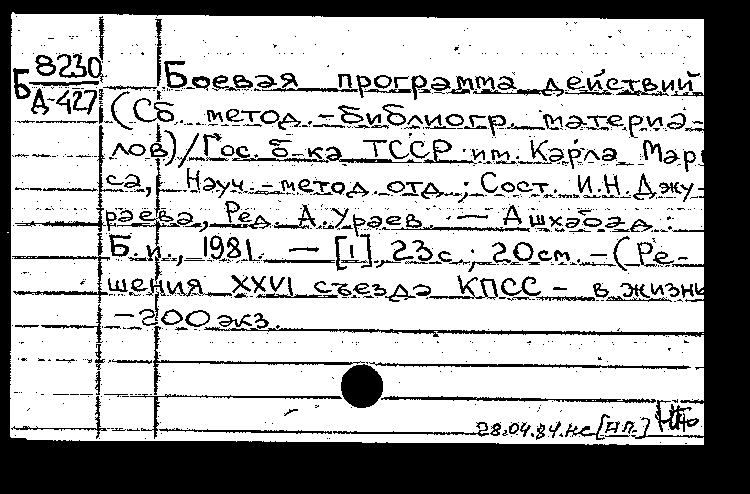 Б 8230
Д-427
Боевая программа действий
(Сб. метод.-библиогр. материа-
лов)/Гос. б-ка ТССР им. Карла Марк
са, Науч.-метод. отд.; Сост. И.Н. Джу-
раева, Ред. А. Ураев. — Ашхабад:
Б.и., 1981. — [1], 23 с.; 20 см. — (Ре-
шения XXVI съезда КПСС – в жизнь
— 200 экз.
28.04.84. нс [НП.]